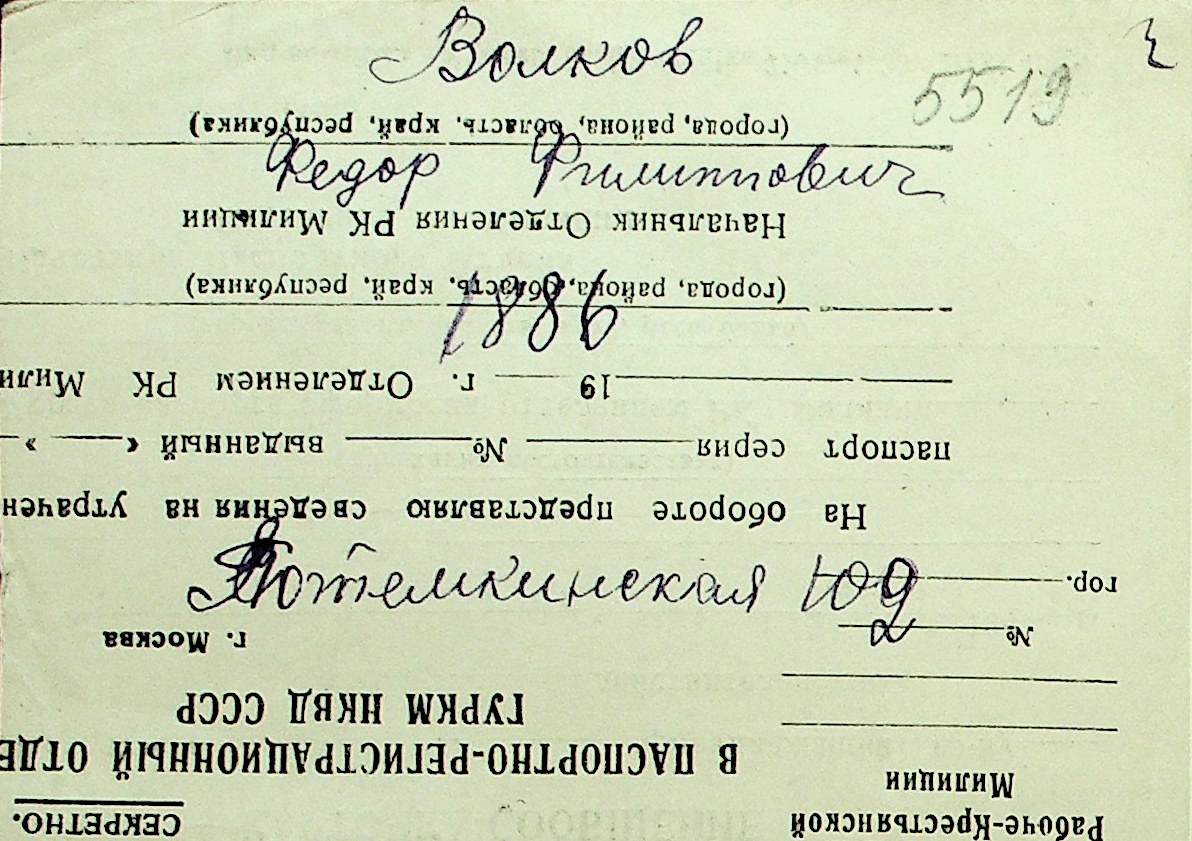 Волков
5519
Федор Филиппович
1886
Потемкинская 109
2
СЕКРЕТНО.
Рабоче-Крестьянской
Милиции
В ПАСПОРТНО-РЕГИСТРАЦИОННЫЙ ОТДЕ
ГУРКМ НКВД СССР
г. Москва
№
гор.
На обороте представляю сведения на утрачен
паспорт серия № выданный « »
19 г. Отделением РК Мили
(города, района, область, край, республика)
Начальник Отделения РК Милиции
(города, района, область, край, республика)